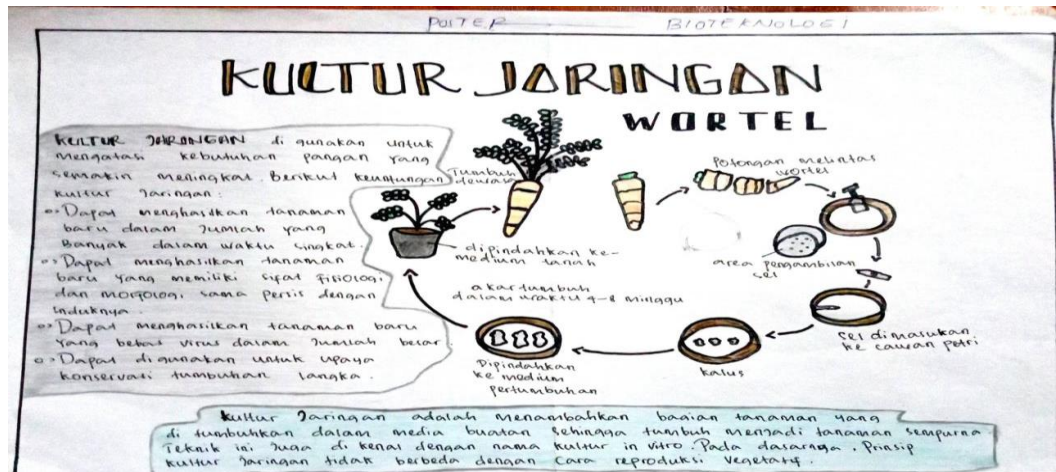 POSTER BIOTEKNOLOGI
KULTUR JARINGAN
WORTEL
KULTUR JARINGAN di gunakan untuk
mengatasi kebutuhan pangan yang
semakin meningkat. Berikut keuntungan
kultur jaringan:
Dapat menghasilkan tanaman
baru dalam jumlah yang
Banyak dalam waktu singkat.
Dapat menghasilkan tanaman
baru yang memiliki sifat fisiologi
dan morfologi sama persis dengan
induknya.
Dapat menghasilkan tanaman baru
yang bebas virus dalam jumlah besar
Dapat digunakan untuk upaya
konservasi tumbuhan langka.
Tumbuh
dewasa
Potongan melintas
wortel
area pengambilan
sel
sel dimasukan
ke cawan petri
kalus
Dipindahkan
ke medium
pertumbuhan
akar tumbuh
dalam waktu 4-8 minggu
dipindahkan ke-
medium tanah
kultur jaringan adalah menambahkan bagian tanaman yang
di tumbuhkan dalam media buatan sehingga tumbuh menjadi tanaman sempurna
Teknik ini juga di kenal dengan nama kultur in vitro. Pada dasarnya. Prinsip
kultur jaringan tidak berbeda dengan cara reproduksi vegetatif.